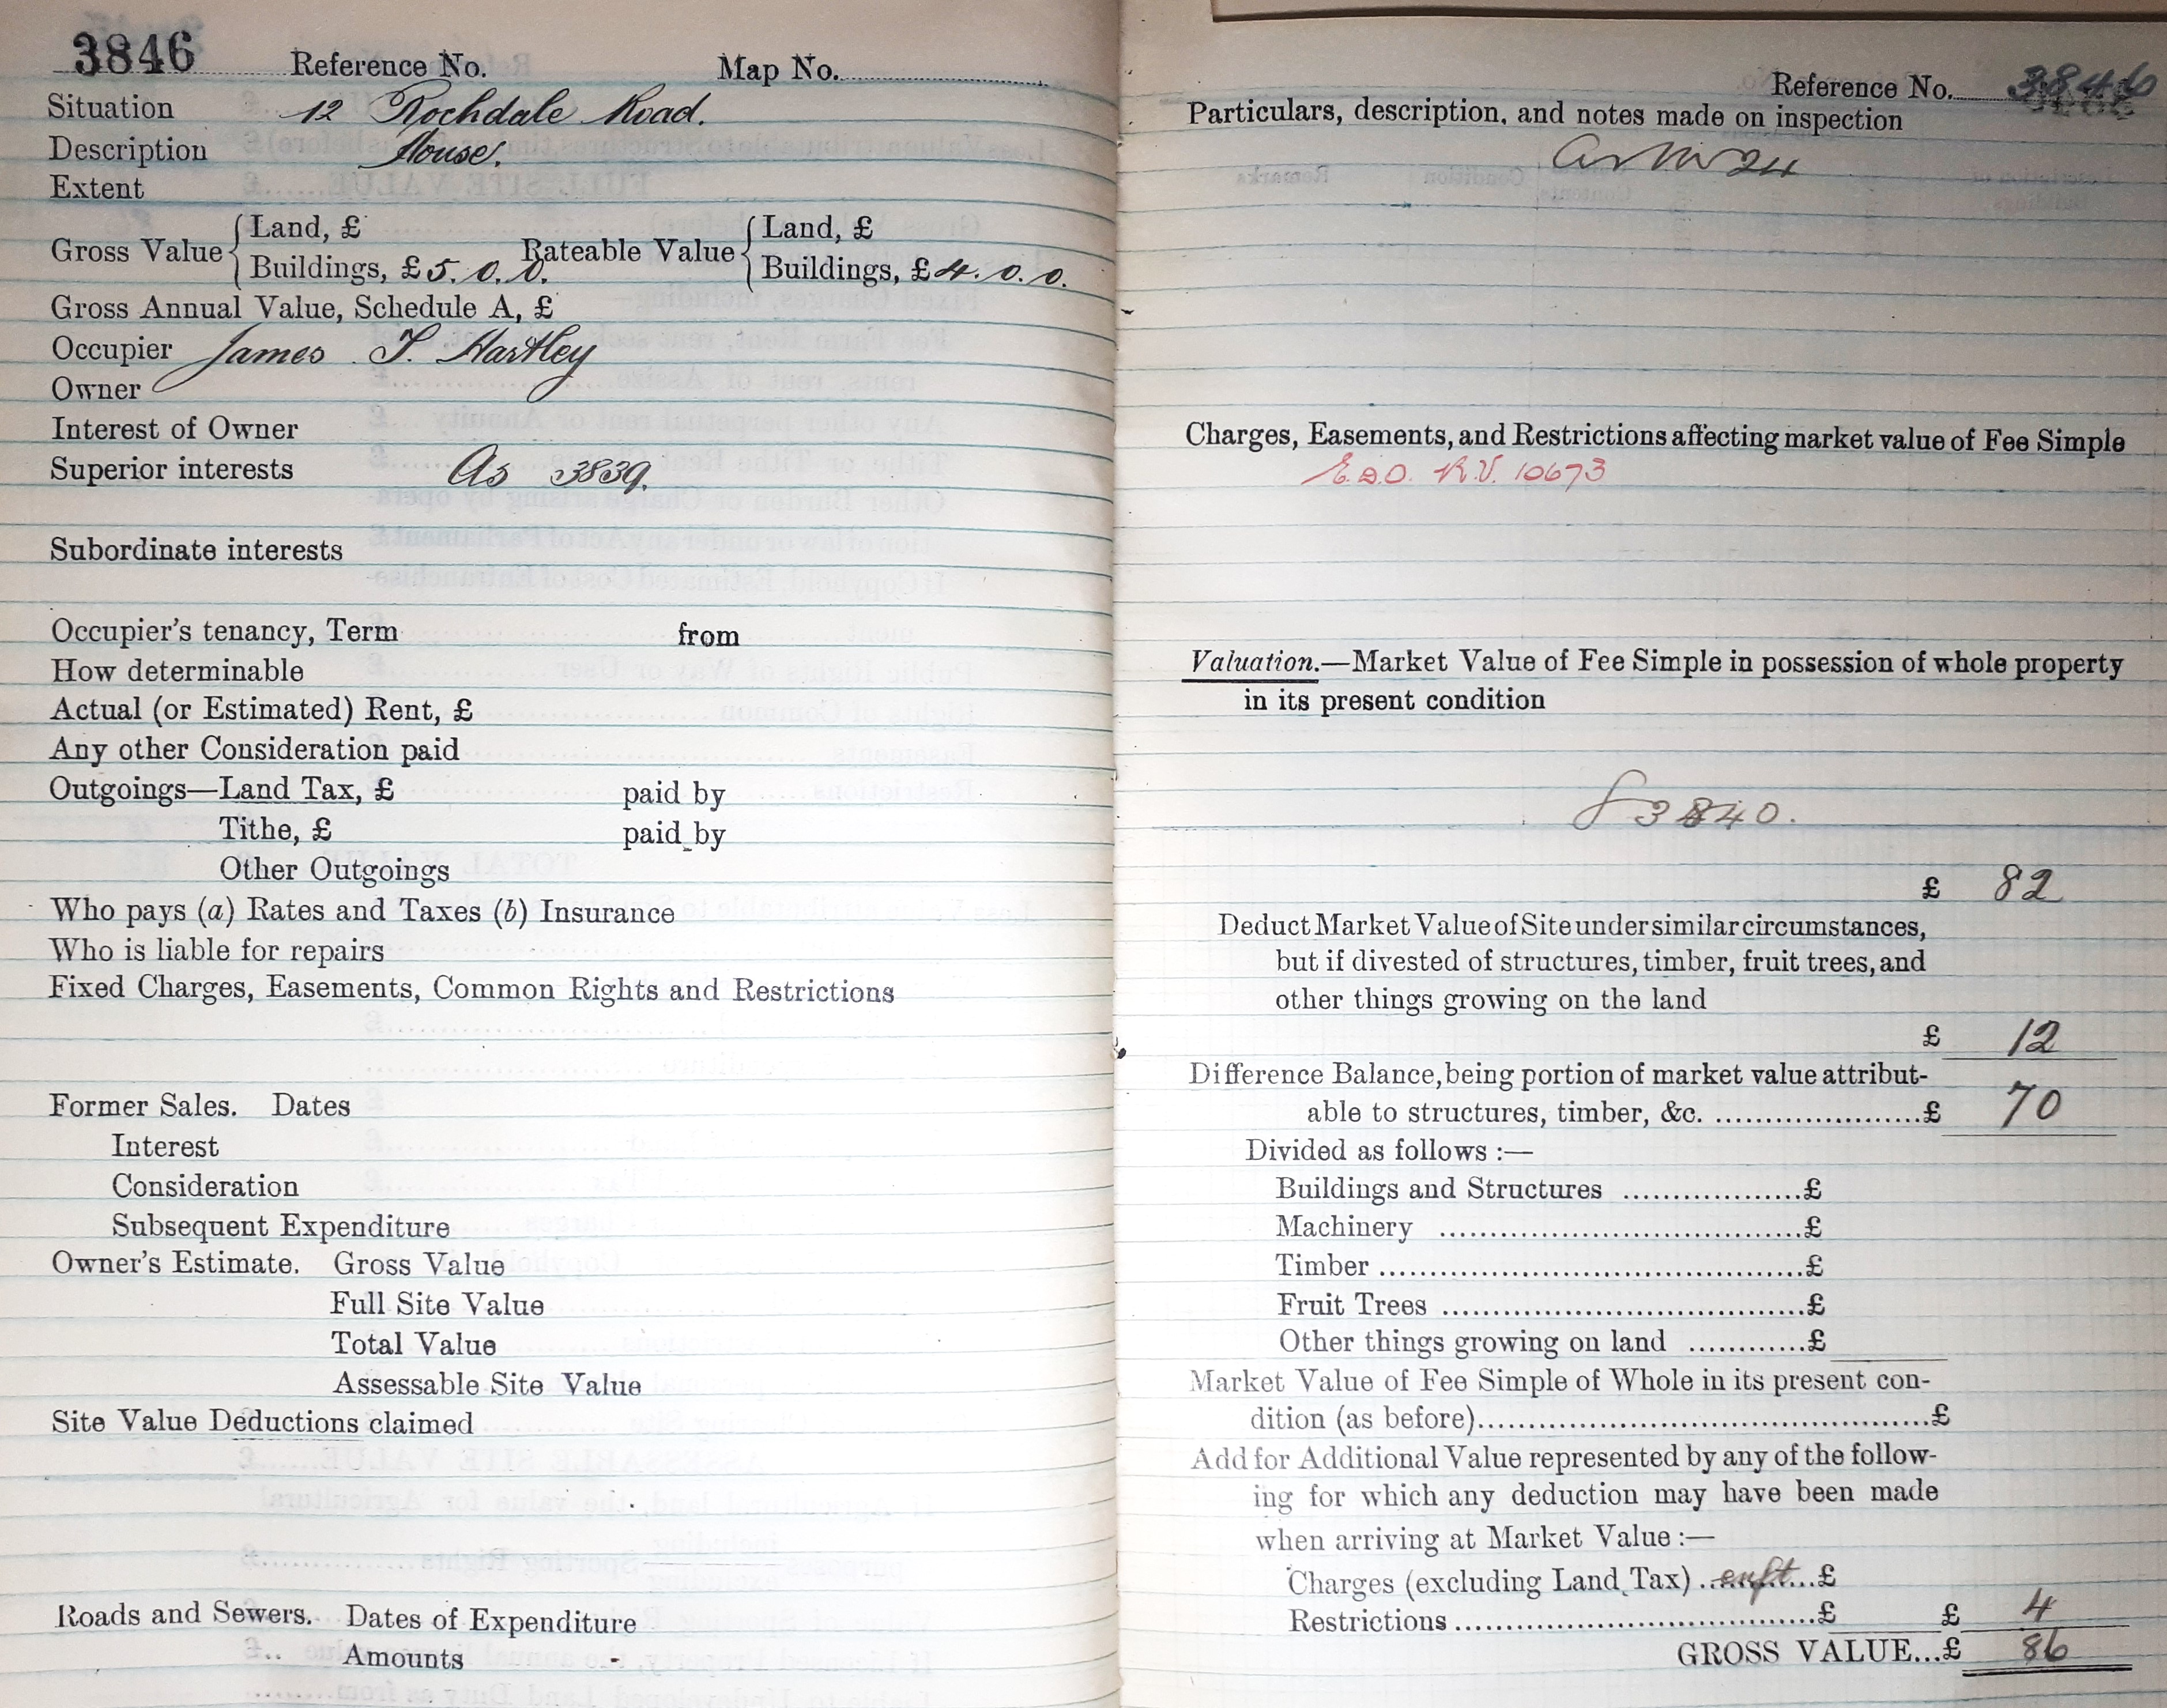 3846 Reference No. Map No.
Situation 12 Rochdale Road.
Description House.
Extent
Gross Value { Land, £ Rateable Value { Land, £
Buildings, £ 5. 0. 0. Buildings, £ 4. 0. 0.
Gross Annual Value, Schedule A, £
Occupier James T. Hartley
Owner
Interest of Owner
Superior interests As 3839.
Subordinate interests
Occupier's tenancy, Term from
How determinable
Actual (or Estimated) Rent, £
Any other Consideration paid
Outgoings—Land Tax, £ paid by
Tithe, £ paid by
Other Outgoings
Who pays (a) Rates and Taxes (b) Insurance
Who is liable for repairs
Fixed Charges, Easements, Common Rights and Restrictions
Former Sales. Dates
Interest
Consideration
Subsequent Expenditure
Owner's Estimate. Gross Value
Full Site Value
Total Value
Assessable Site Value
Site Value Deductions claimed
Roads and Sewers. Dates of Expenditure
Amounts
Reference No. 3846
Particulars, description, and notes made on inspection
Charges, Easements, and Restrictions affecting market value of Fee Simple
K.V. 10673
Valuation.—Market Value of Fee Simple in possession of whole property
in its present condition
3840.
£ 82
Deduct Market Value of Site under similar circumstances,
but if divested of structures, timber, fruit trees, and
other things growing on the land
£ 12
Difference Balance, being portion of market value attribut-
able to structures, timber, &c. £ 70
Divided as follows :—
Buildings and Structures £
Machinery £
Timber £
Fruit Trees £
Other things growing on land £
Market Value of Fee Simple of Whole in its present con-
dition (as before) £
Add for Additional Value represented by any of the follow-
ing for which any deduction may have been made
when arriving at Market Value :—
Charges (excluding Land Tax) £
Restrictions £ £ 4
GROSS VALUE...£ 86